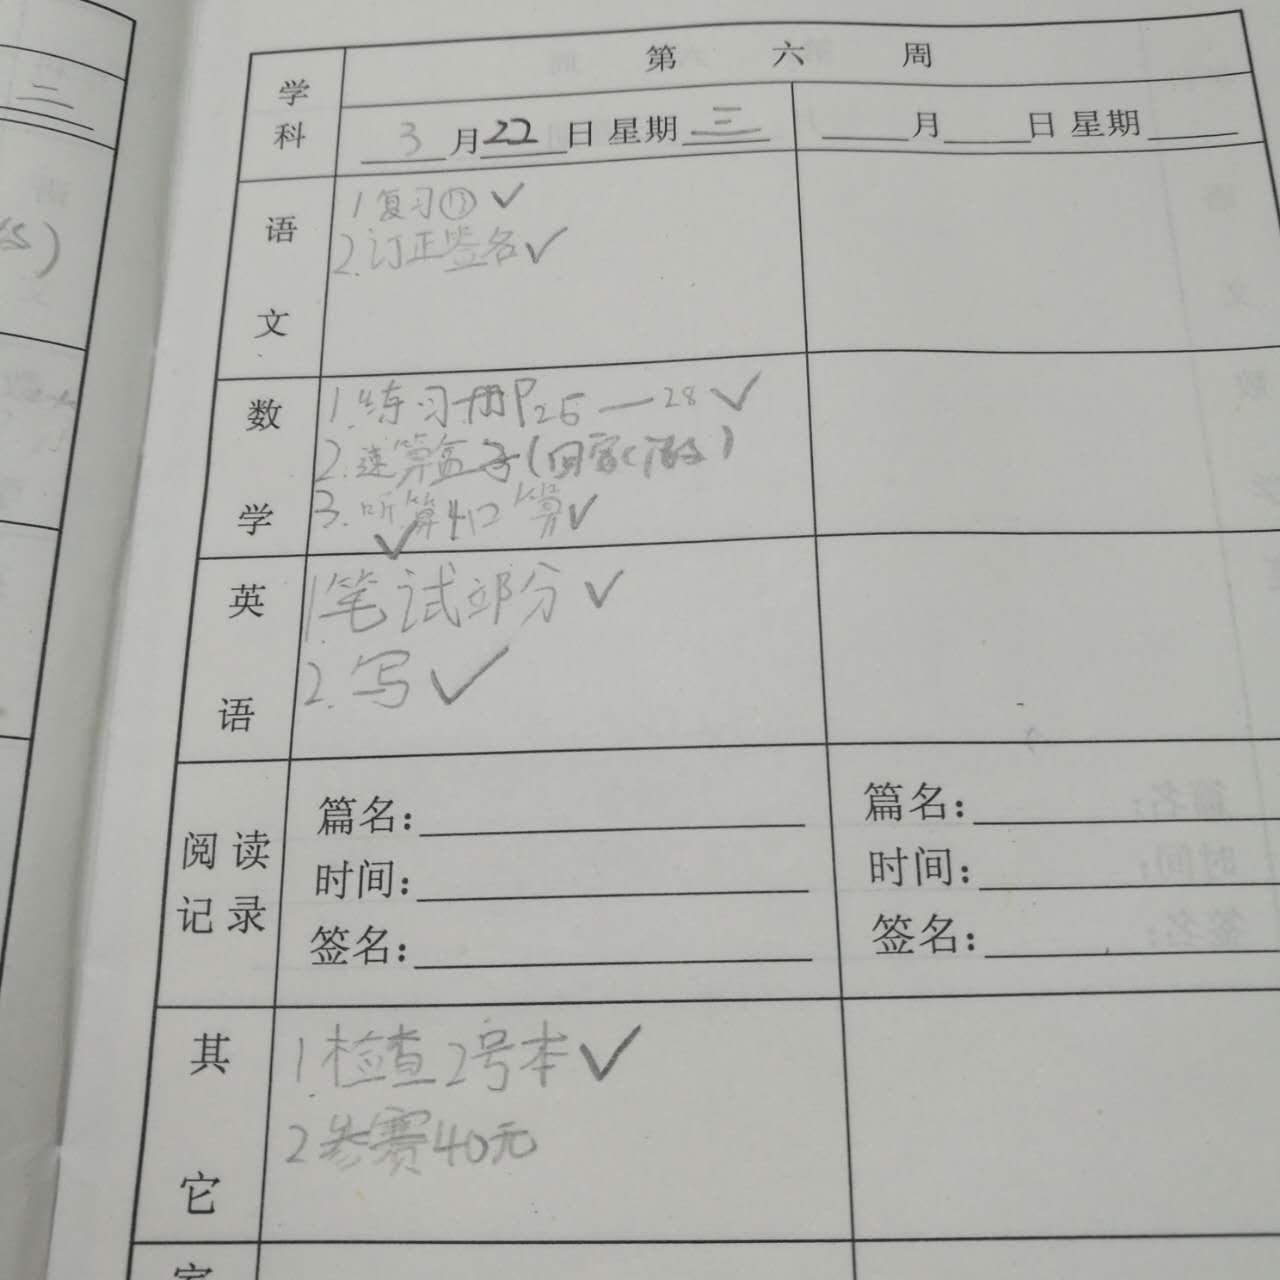 二
第 六 周
学科
3月22日 星期三
月 日 星期
语文
1复习⑬✓
2.订正签名✓
数学
1.练习册P25—28✓
2.速算盒子(回家做)
3.听算4口算✓
✓
英语
1笔试部分✓
2.写✓
阅读记录
篇名:
时间:
签名:
篇名:
时间:
签名:
其它
1检查2号本✓
2参赛40元